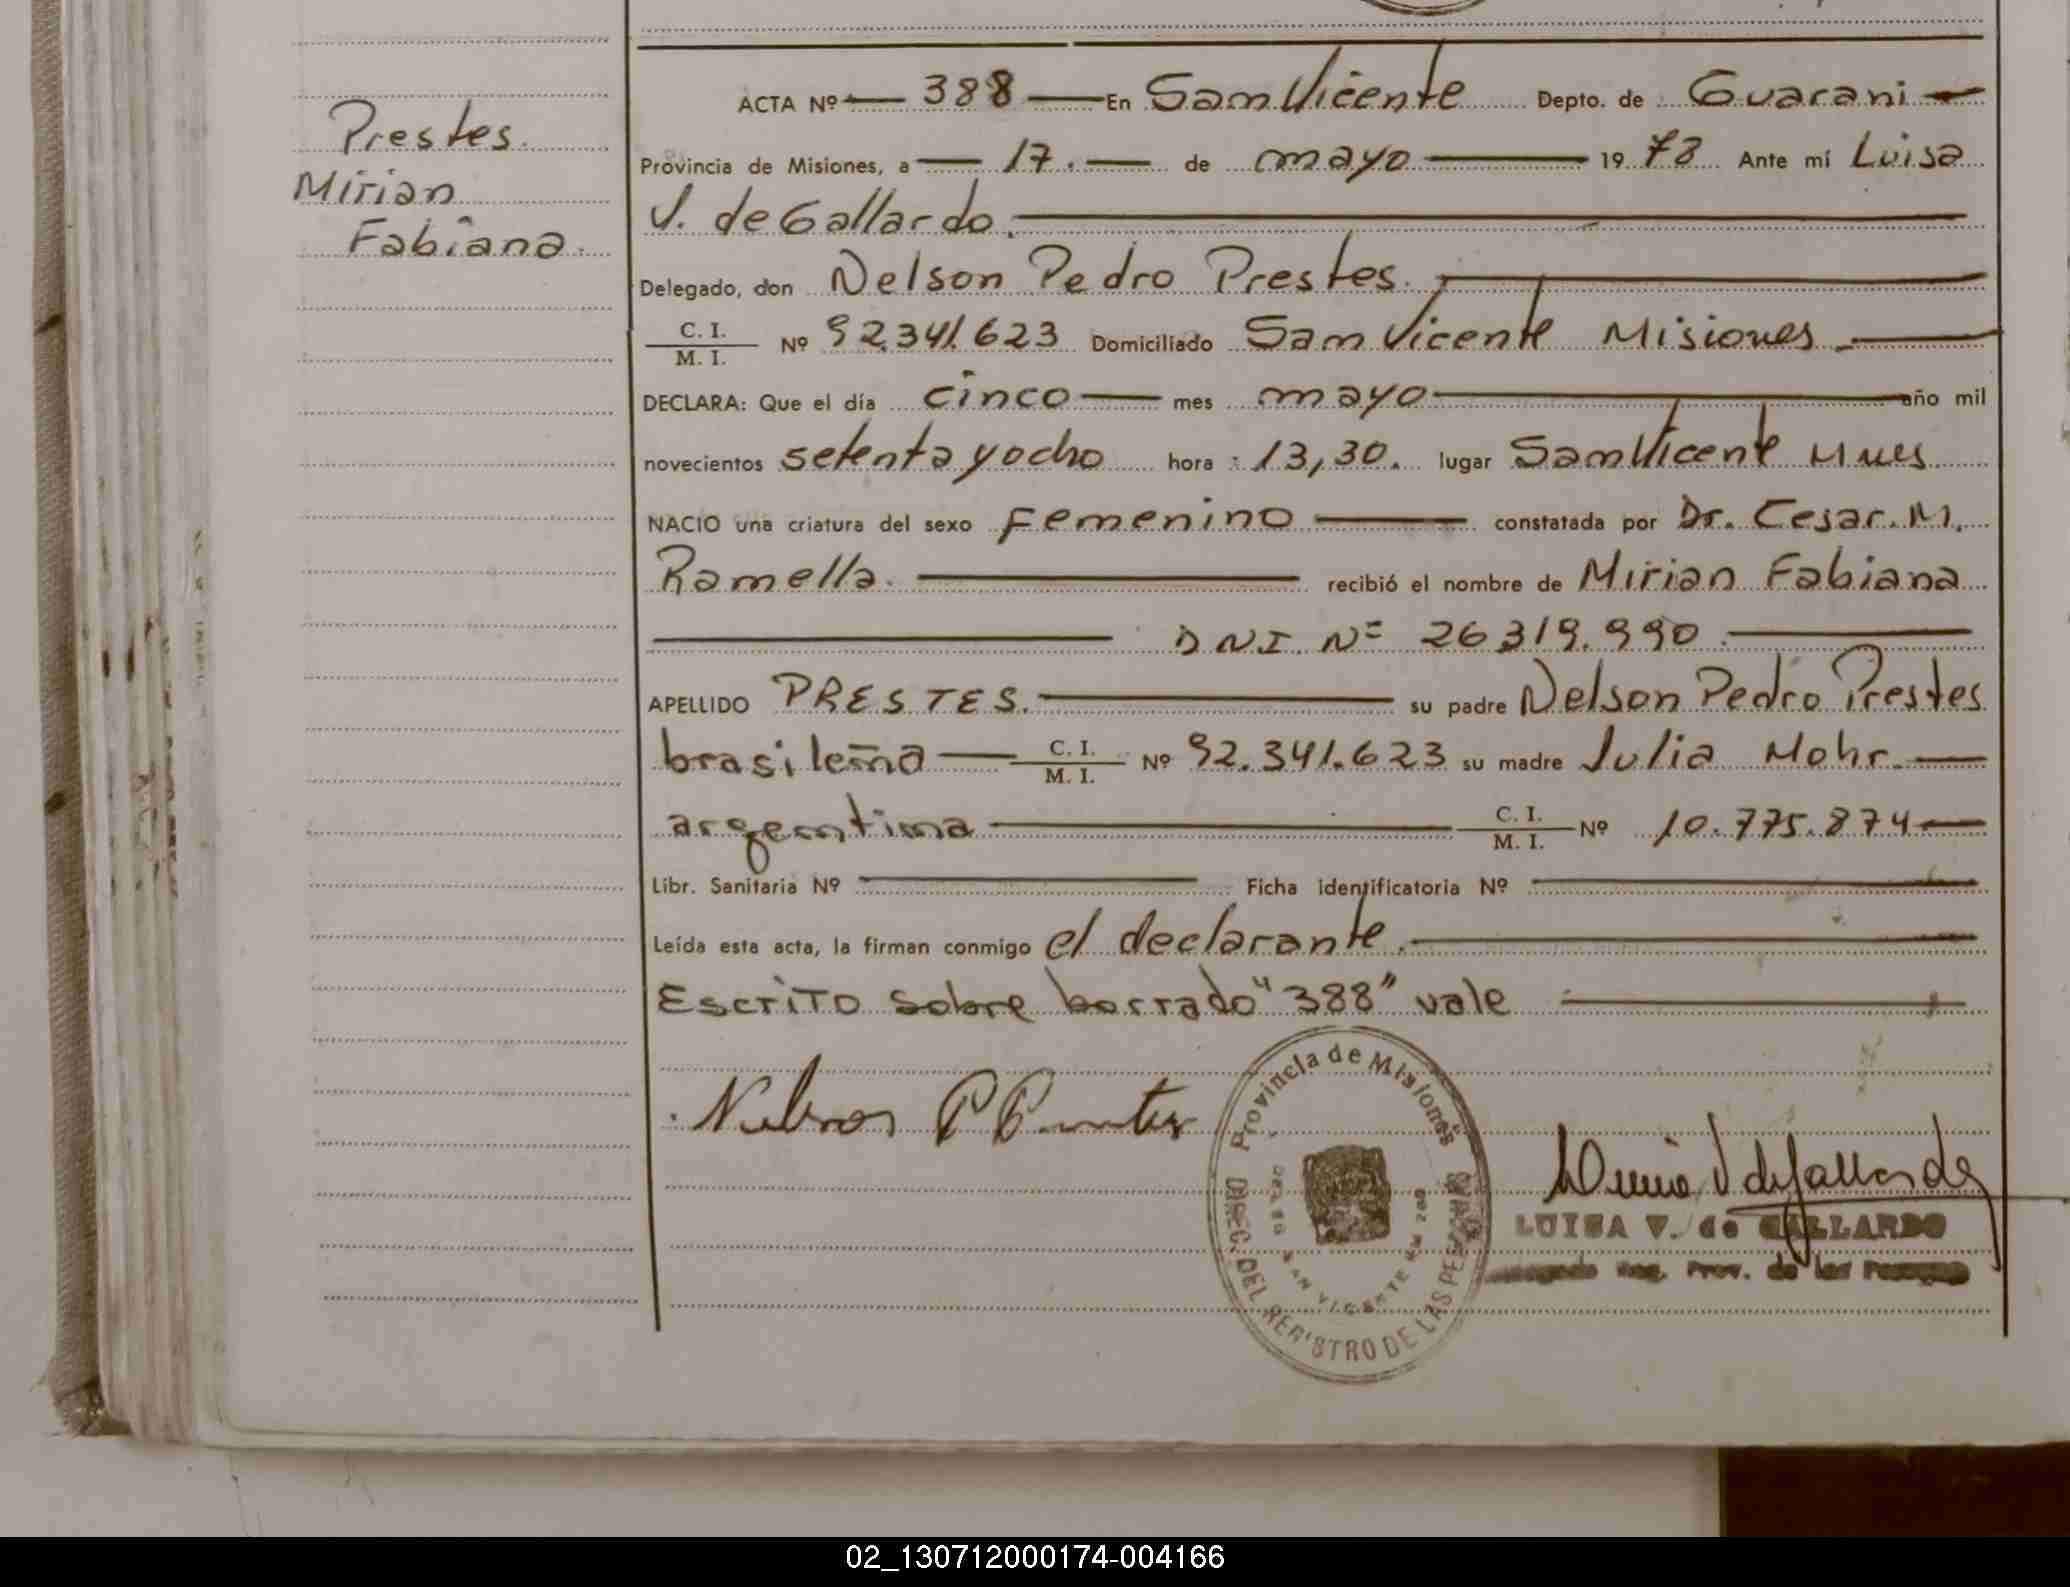 Prestes.
Mirian
Fabiana.
ACTA Nº 388 En San Vicente Depto. de Guarani
Provincia de Misiones, a 17. de mayo 19 78 Ante mí Luisa
V. de Gallardo.
Delegado, don Nelson Pedro Prestes.
C. I.
M. I. Nº 92.341.623 Domiciliado San Vicente Misiones
DECLARA: Que el día cinco mes mayo año mil
novecientos setenta y ocho hora 13,30. lugar San Vicente Mnes
NACIO una criatura del sexo femenino constatada por Dr. Cesar. M.
Ramella. recibió el nombre de Mirian Fabiana
DNI. Nº 26319.990.
APELLIDO PRESTES. su padre Nelson Pedro Prestes
brasileña C. I.
M. I. Nº 92.341.623 su madre Julia Mohr.
argentina C. I.
M. I. Nº 10.775.874
Libr. Sanitaria Nº Ficha identificatoria Nº
Leída esta acta, la firman conmigo el declarante.
Escrito sobre borrado "388" vale
Provincia de Misiones
DIREC. DEL REGISTRO DE LAS PERSONAS
SAN VICENTE KM
LUISA V. de GALLARDO
Reg. Prov. de las Personas
02_130712000174-004166